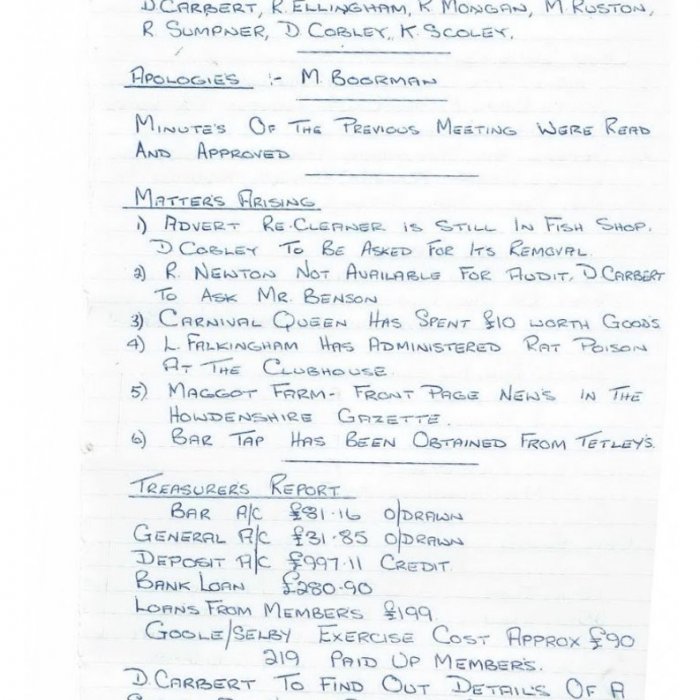 D. CARBERT, R. ELLINGHAM, K. MONGAN, M. RUSTON,
R SUMPNER, D. COBLEY, K. SCOLEY.
APOLOGIES :- M. BOORMAN
MINUTE'S OF THE PREVIOUS MEETING WERE READ
AND APPROVED
MATTER'S ARISING
1) ADVERT RE-CLEANER IS STILL IN FISH SHOP.
D COBLEY TO BE ASKED FOR ITS REMOVAL.
2) R. NEWTON NOT AVAILABLE FOR AUDIT. D CARBERT
TO ASK MR. BENSON
3) CARNIVAL QUEEN HAS SPENT £10 WORTH GOODS
4) L. FALKINGHAM HAS ADMINISTERED RAT POISON
AT THE CLUBHOUSE.
5) MAGGOT FARM - FRONT PAGE NEWS IN THE
HOWDENSHIRE GAZETTE.
6) BAR TAP HAS BEEN OBTAINED FROM TETLEY'S.
TREASURER'S REPORT
BAR A/C £81.16 O/DRAWN
GENERAL A/C £31.85 O/DRAWN
DEPOSIT A/C £997.11 CREDIT.
BANK LOAN £280.90
LOANS FROM MEMBERS £199.
GOOLE/SELBY EXERCISE COST APPROX £90
219 PAID UP MEMBER'S.
D. CARBERT TO FIND OUT DETAIL'S OF A